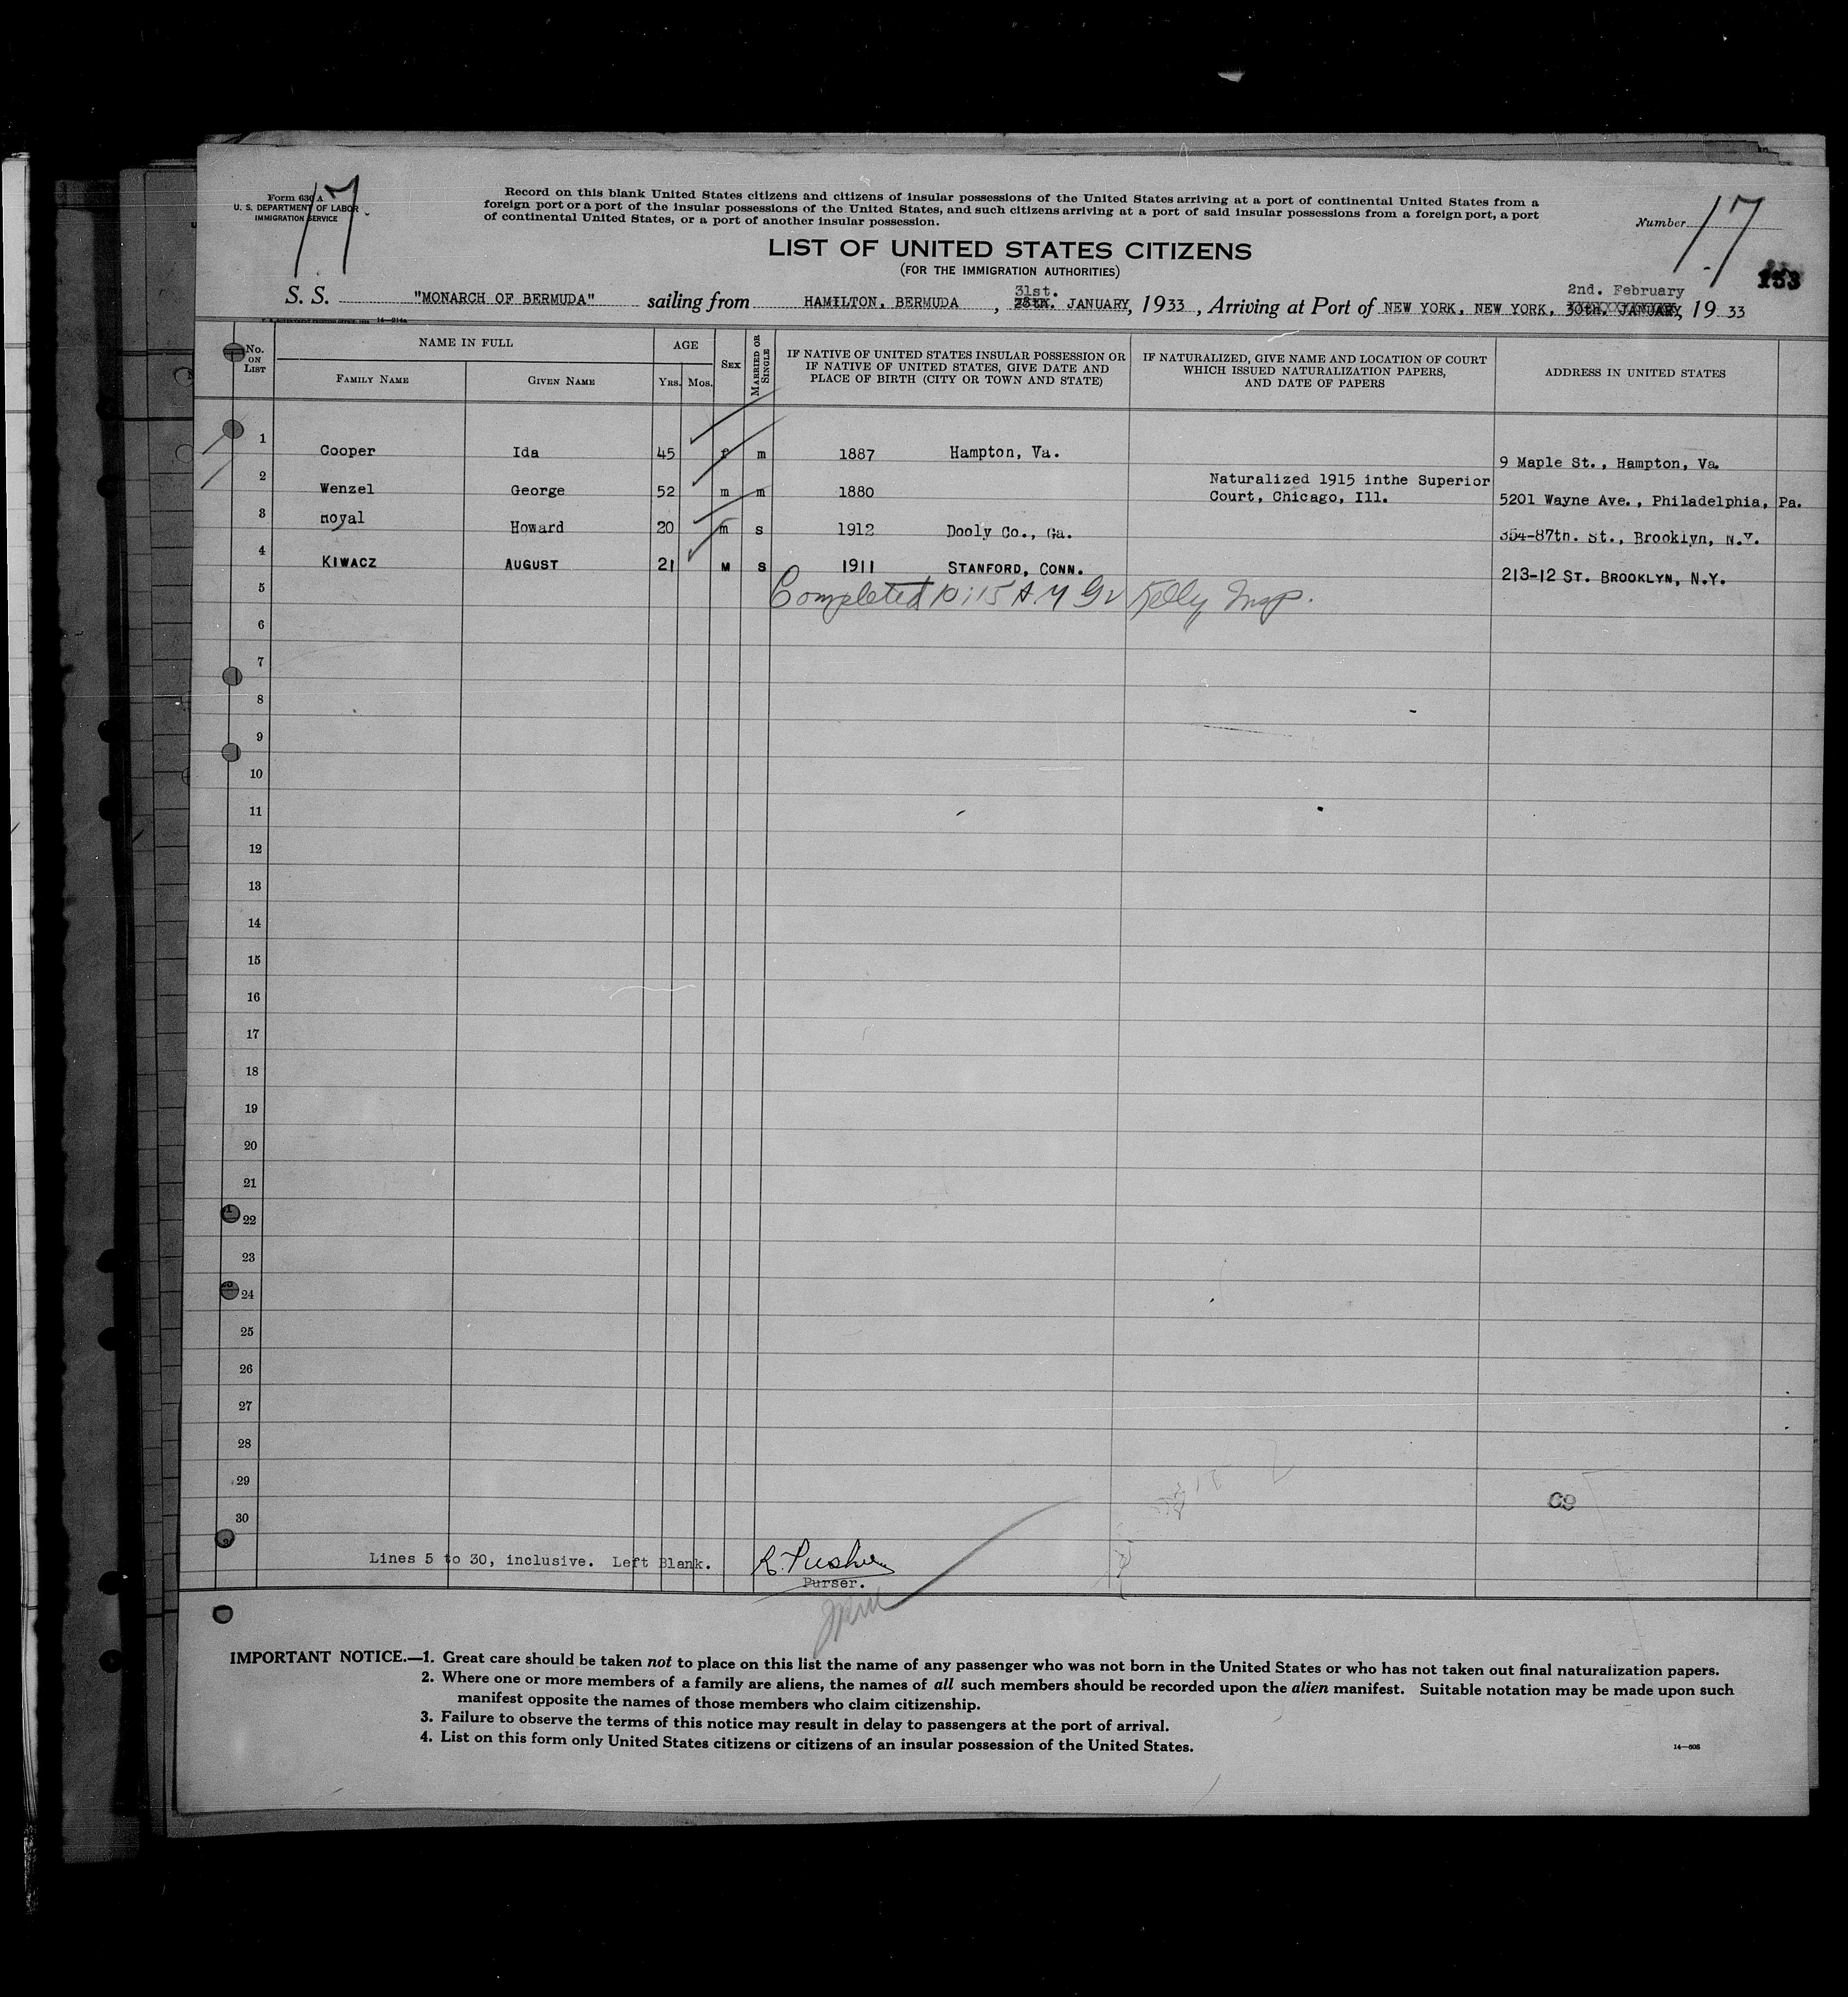 Form 630 A
U. S. DEPARTMENT OF LABOR
IMMIGRATION SERVICE
17
Record on this blank United States citizens and citizens of insular possessions of the United States arriving at a port of continental United States from a
foreign port or a port of the insular possessions of the United States, and such citizens arriving at a port of said insular possessions from a foreign port, a port
of continental United States, or a port of another insular possession.
Number 17
LIST OF UNITED STATES CITIZENS
(FOR THE IMMIGRATION AUTHORITIES)
153
31st. 2nd. February
S. S. "MONARCH OF BERMUDA" sailing from HAMILTON, BERMUDA, 28th. JANUARY, 1933, Arriving at Port of NEW YORK, NEW YORK, 30th. JANUARY, 19 33
14—214a
No. ON LIST
NAME IN FULL
FAMILY NAME
GIVEN NAME
AGE
YRS. MOS.
SEX
MARRIED OR SINGLE
IF NATIVE OF UNITED STATES INSULAR POSSESSION OR
IF NATIVE OF UNITED STATES, GIVE DATE AND
PLACE OF BIRTH (CITY OR TOWN AND STATE)
IF NATURALIZED, GIVE NAME AND LOCATION OF COURT
WHICH ISSUED NATURALIZATION PAPERS,
AND DATE OF PAPERS
ADDRESS IN UNITED STATES
1 Cooper Ida 45 f m 1887 Hampton, Va. 9 Maple St., Hampton, Va.
2 Wenzel George 52 m m 1880 Naturalized 1915 inthe Superior
Court, Chicago, Ill. 5201 Wayne Ave., Philadelphia, Pa.
3 Royal Howard 20 m s 1912 Dooly Co., Ga. 354-87th. St., Brooklyn, N.Y.
4 KIWACZ AUGUST 21 M S 1911 STANFORD, CONN. 213-12 ST. BROOKLYN, N.Y.
5 Completed 10:15 A M Kelly Insp.
6
7
8
9
10
11
12
13
14
15
16
17
18
19
20
21
22
23
24
25
26
27
28
29
30
Lines 5 to 30, inclusive. Left Blank.
Purser.
IMPORTANT NOTICE.—1. Great care should be taken not to place on this list the name of any passenger who was not born in the United States or who has not taken out final naturalization papers.
2. Where one or more members of a family are aliens, the names of all such members should be recorded upon the alien manifest. Suitable notation may be made upon such
manifest opposite the names of those members who claim citizenship.
3. Failure to observe the terms of this notice may result in delay to passengers at the port of arrival.
4. List on this form only United States citizens or citizens of an insular possession of the United States.